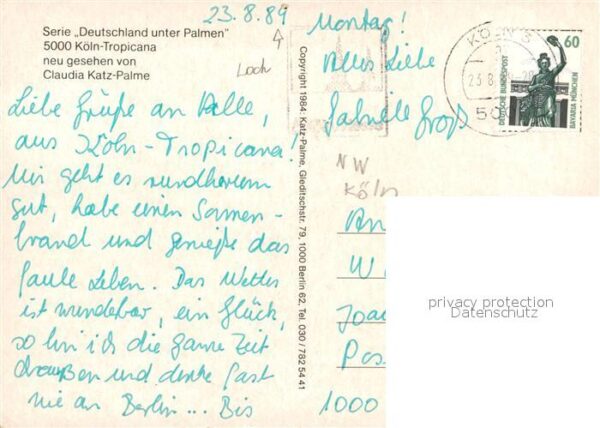 23.8.89
Serie „Deutschland unter Palmen"
5000 Köln-Tropicana
neu gesehen von
Claudia Katz-Palme
Loch
Liebe Grüße an Alle,
aus Köln-Tropicana!
Mir geht es rundherum
gut, habe einen Sonnen-
brand und genieße das
faule Leben. Das Wetter
ist wunderbar, ein Glück,
so bin ich die ganze Zeit
draußen und denke fast
nie an Berlin... Bis
Copyright 1984, Katz-Palme, Gleditschstr. 79, 1000 Berlin 62, Tel. 030/782 54 41
Montag!
Alles Liebe
KÖLN 3
23.8.
50
60
DEUTSCHE BUNDESPOST
BAVARIA MÜNCHEN
NW
Köln
An
W
Joa
Pos
1000
privacy protection
Datenschutz